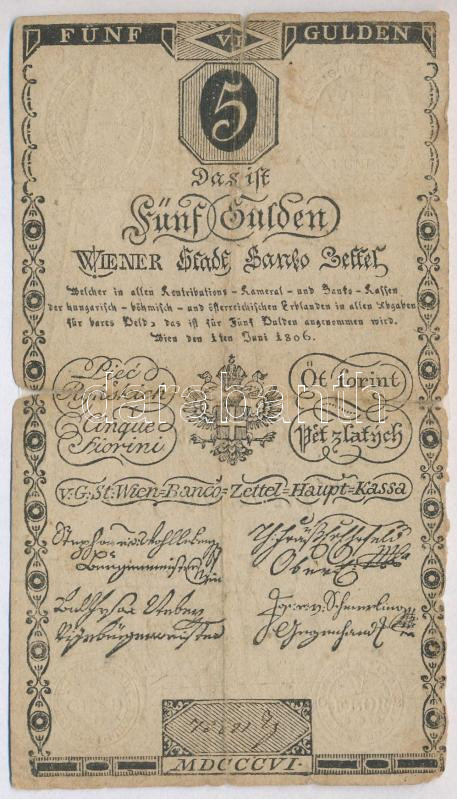 FÜNF VF GULDEN
5
Das ist
Fünf Gulden
WIENER Stadt Banko Zettel
Welcher in allen Kontributions - Kameral - und Banko - Kassen
der hungarisch - böhmisch - und österreichischen Erblanden in allen Abgaben
für bares Geld, das ist für Fünf Gulden angenommen wird.
Wien den 1ten Juni 1806.
Pięć Ryńskich
Öt forint
Cinque Fiorini
Pět zlatých
darabanth
v: G: St: Wien=Banco=Zettel=Haupt=Kassa
Stephan
Burgermeister
Vizebürgermeister
Gegenhand
MDCCCVI